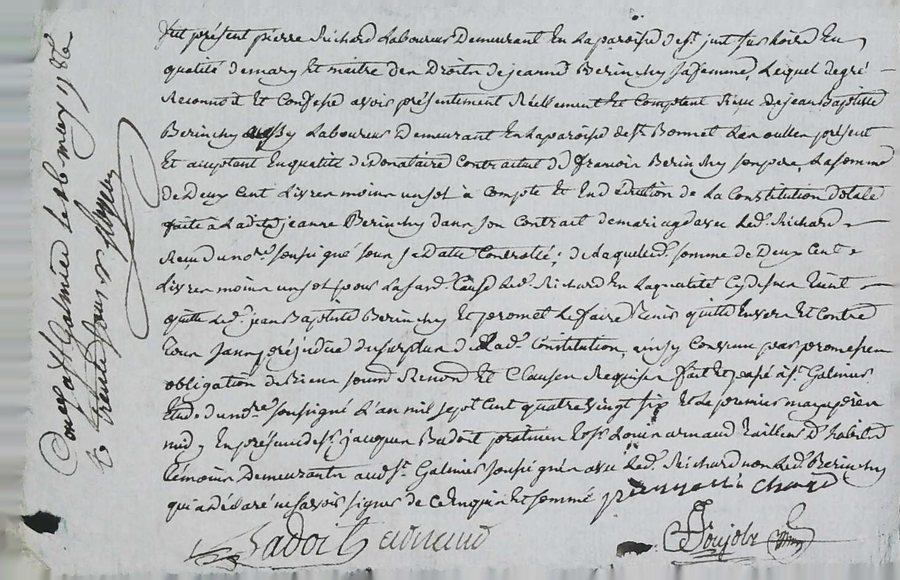 fut présent pierre Richard Laboureur Demeurant En la paroisse de st just sur Loire En
qualité de mary Et maitre den Droits de jeanne Berinchy sa femme, Lequel de gré
Reconnoit Et Confesse avoir présentement Réellement Et Comptent Reçu de jean Baptiste
Berinchy aussy Laboureur Demeurant En la paroisse de st Bonnet Les oullen présent
Et aceptant En qualité de donataire Contractuel de francois Berinchy son pere La somme
de Deux Cent Livren moin un sol à Compte Et En déduction de La Constitution dotale
faite a La dite jeanne Berinchy dans son Contrat de mariage avec Led. Richard
Reçu du nore soussigné soun sa Date Controllé; de laquelle d. somme de Deux Cent
Livren moin un sol pour La sard. Cause Led. Richard En La qualité Cy dessus tient
quitte Led. jean Baptiste Berinchy Et promet Le faire tenir quitte Enven Et Contre
toun sann préjudice du surplun de Lad. Constitution, ainsy Convenu par promessen
obligation de Bien soum Renon Et Clausen Requisen fait Et passé à st Galmier
Etude du nore soussigné L'an mil sept Cent quatre vingt six Et Le premier may aprèn
midy En présence de sr jacquen Badoit praticien Et sr Louin arnaud tailleur d'habits
témoin Demeurants aud. st Galmier soussignén avec Led. Richard non Led. Berinchy
qui a déclaré ne savoir signer de Ce Enquin Et sommé pierre Richard
Badoit arnaud Poujolz
Controllé a st Galmier le 16 may 1786
R. trente sous